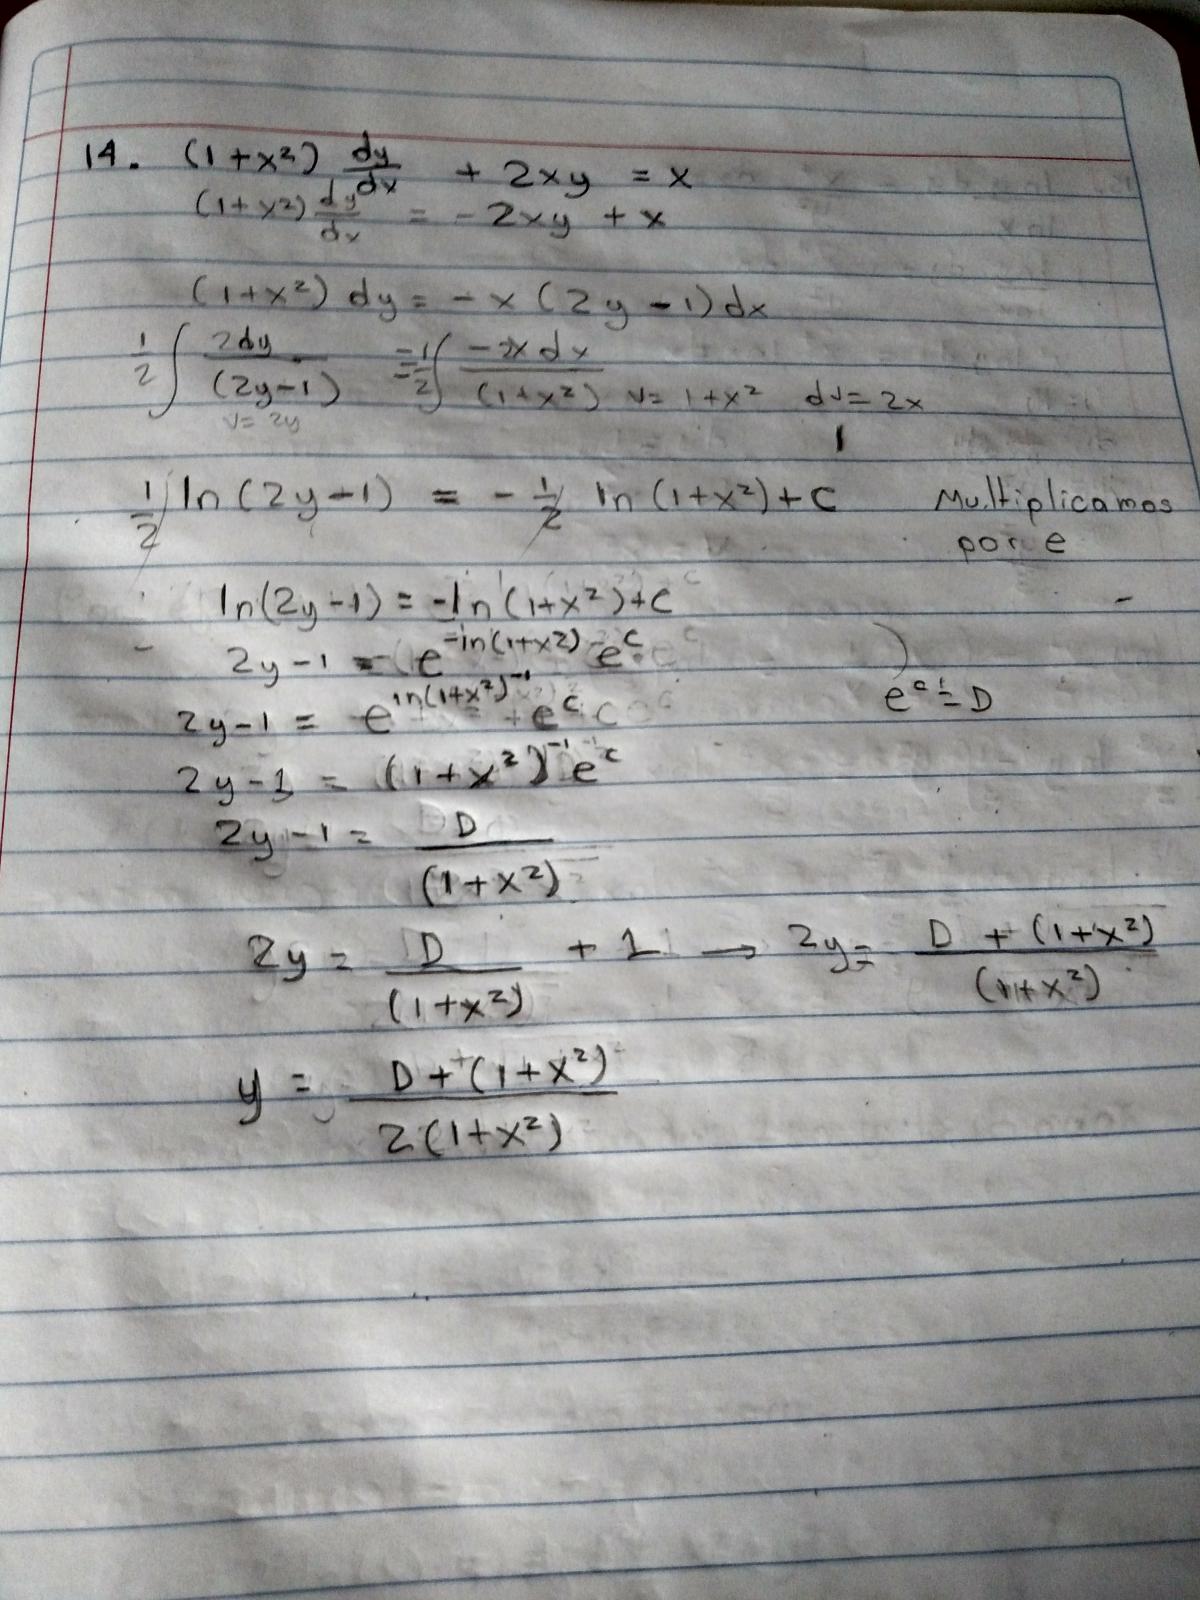 14. (1+x²) dy/dx + 2xy = x
(1+x²) dy/dx = -2xy + x
(1+x²) dy = -x (2y-1) dx
1/2 ∫ 2dy/(2y-1) = 1/2 ∫ -2x dx/(1+x²) v= 1+x² dv= 2x
v= 2y
1/2 ln(2y-1) = - 1/2 ln (1+x²)+C Multiplicamos
por e
ln(2y-1) = -ln (1+x²)+C
2y-1 = e^-ln(1+x²) e^c
2y-1 = e^ln(1+x²)^-1 e^c
e^c = D
2y-1 = (1+x²)^-1 e^c
2y-1 = D/(1+x²)
2y = D/(1+x²) + 1 → 2y = D + (1+x²)/(1+x²)
y = D+(1+x²)/2(1+x²)